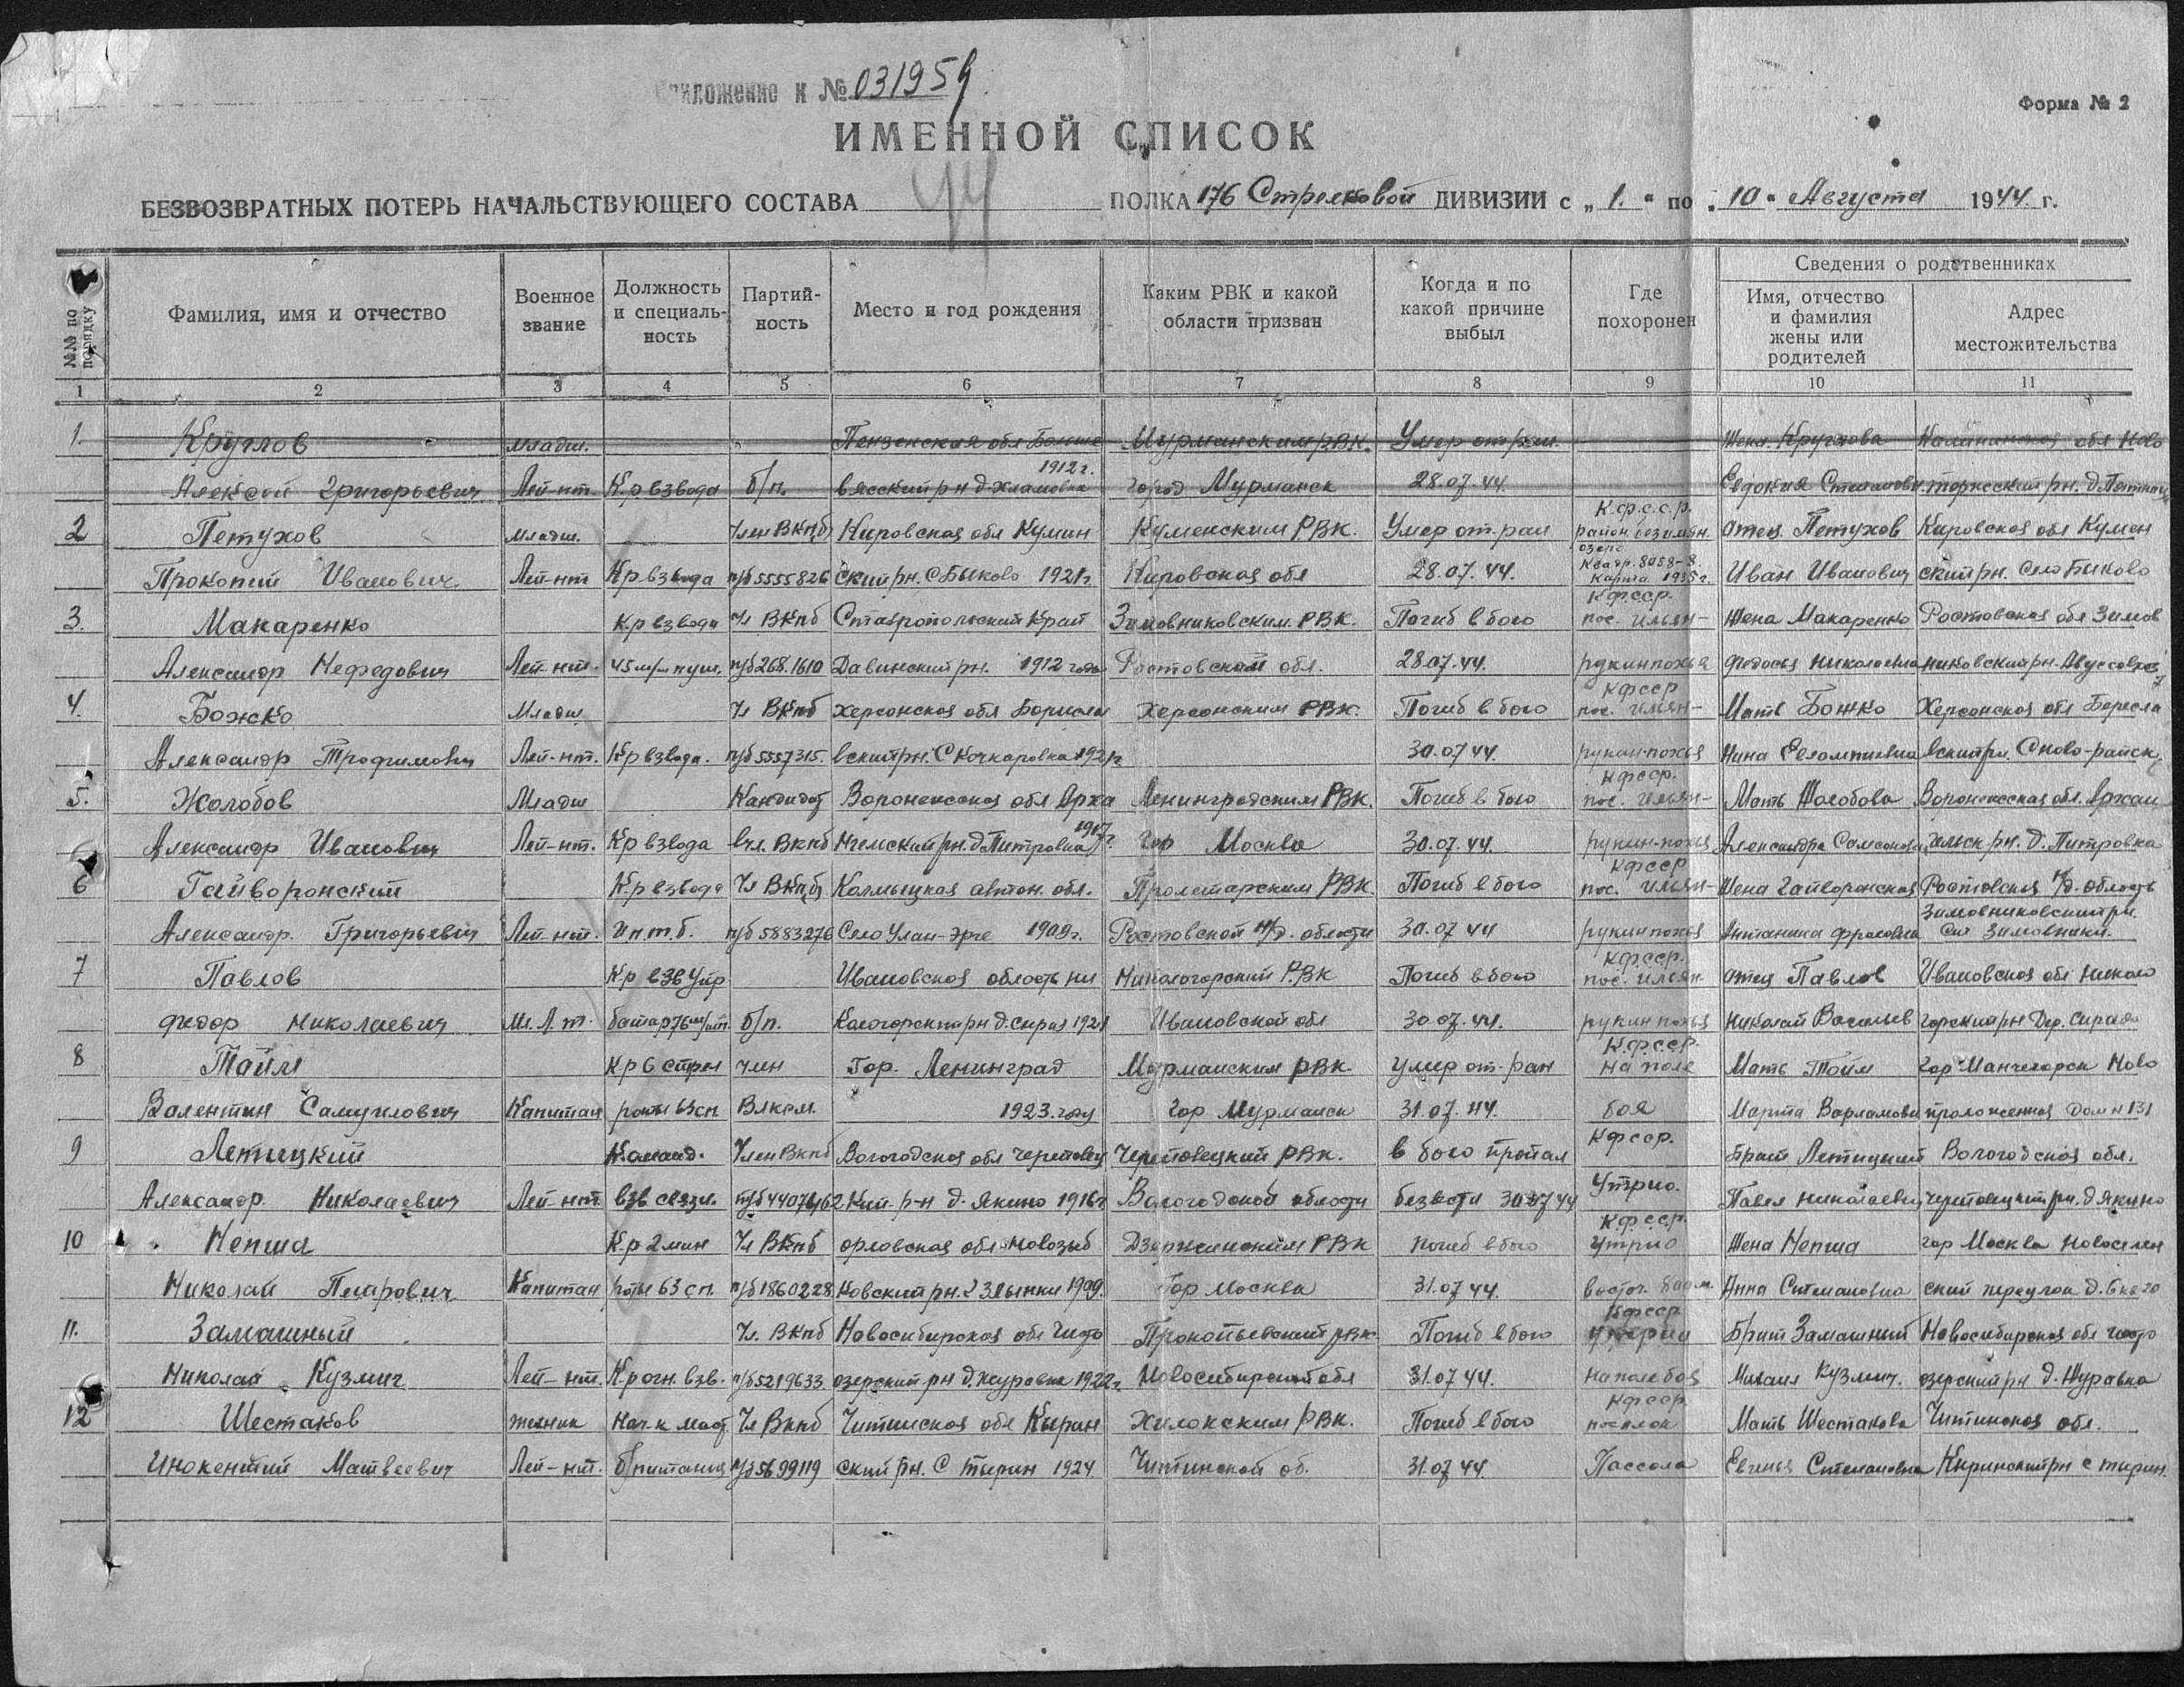 Приложение к № 031959
Форма № 2
ИМЕННОЙ СПИСОК
БЕЗВОЗВРАТНЫХ ПОТЕРЬ НАЧАЛЬСТВУЮЩЕГО СОСТАВА ПОЛКА 176 Стрелковой ДИВИЗИИ с „ 1. “ по „ 10 “ Августа 1944 г.
№№ по порядку
Фамилия, имя и отчество
Военное звание
Должность и специаль-ность
Партий-ность
Место и год рождения
Каким РВК и какой области призван
Когда и по какой причине выбыл
Где похоронен
Сведения о родственниках
Имя, отчество и фамилия жены или родителей
Адрес местожительства
1 2 3 4 5 6 7 8 9 10 11
1. Круглов младш. Пензенская обл Мурманским РВК. Умер от ран. жена. Круглова Калининская обл Ново
Алексей Григорьевич Лей-нт. К.р взвода б/п. вясский рн 1912 г. город Мурманск 28.07.44. Евдокия
2 Петухов младш. Член ВКПб Кировская обл Кумин Куменским РВК. Умер от ран К.ф.с.с.р. район безимян. отец. Петухов Кировская обл Кумен
Прокопий Иванович. Лей-нт Кр взвода п/б 5555826 ский рн. с Быково 1921г. Кировская обл 28.07.44. озеро Квадр. 8058-8. Карта 1935г. Иван Иванович ский рн. село Биково
3. Макаренко Кр взвода Чл ВКпб Ставропольский Край Зимовниковским. РВК. Погиб в бою Кфсср. пос. ильян- Жена Макаренко Ростовская обл Зимов
Александр Нефедович Лей-нт. 45 м/м пуш. п/б 268.1610 Давинский рн. 1912 года Ростовской обл. 28.07.44. Федосья Николаевна никовский рн.
4. Божко Младш Чл ВКпб Херсонская обл Берисла Херсонским РВК. Погиб в бою Кфсср пос. ильян- Мать Божко Херсонская обл Бересла
Александр Трофимович Лей-нт. Кр взвода. п/б 5557315. вский рн. С Качкаровка 1921г 30.07.44. Нина вский рн.
5. Жолобов Младш Кандидат Воронежская обл Арха Ленинградским РВК. Погиб в бою Кфсср. пос. ильян- Мать Жолобова Воронежская обл.
Александр Иванович Лей-нт. Кр взвода вчл. ВКпб д Питровка 1917 г. гор Москва 30.07.44. Александра рн. д. Питровка
6 Гайворонский К.р взвода Чл ВКпб Калмыцкая автон. обл. Пролетарским РВК Погиб в бою Кфсср пос. ильян- Жена Гайворонская Ростовская н/д. область
Александр. Григорьевич Лей-нт. п/б 5883276 Село Улан-Эрге 1909г. Ростовской н/д. области 30.07.44 Антанина Фроловна Зимовниковский рн. Зимовники.
7 Павлов Кр взв Упр Ивановская область ни Никологорский РВК Погиб в бою Кфсср. пос. ильян отец Павлов Ивановская обл Николо
Федор Николаевич Мл. Л. т. б/п. 1921 Ивановской обл 30.07.44. Николай Васильев горский рн Дер.
8 Тайм Кр 6 стрел член Гор. Ленинград Мурманским РВК. Умер от. ран К.ф.с.ср. на поле Мать Тойм гор Ново
Валентин Самуилович Капитан роты 63 сп. Влксм. 1923. году Гор Мурманск 31.07.44. боя Марта дом н 131
9 Летицкий Команд. Член ВКпб Вологодская обл Черповец Череповецкий РВК. в бою пропал Кфсср. Брат Летицкий Вологодская обл.
Александр. Николаевич Лей-нт. взв связи. кий р-н д. Якино 1916г Вологодской области безвести 30.07.44 Утрио. Павел Николаевич череповецкий рн. д Якино
10 Непша К.р 2 мин Чл ВКпб орловская обл Новозыб Дзержинским РВК погиб в бою К.ф.с.ср. Утрио Жена Непша гор Москва Новоселен
Николай Петрович Капитан роты 63 сп. п/б 1860228 ковский рн. 1909. Гор Москва 31.07.44. Анна Степановна ский переулок
11. Замашный Чл. ВКпб Новосибирская обл Чисто Прокопьевский РВК Погиб в бою Кфсср Брат Замашный Новосибирская обл Чисто
Николай Кузмич Лей-нт. К.р огн. взв. п/б 5219633 озерский рн д. Журавка 1922г. Новосибирской обл 31.07.44. на поле боя Михаил Кузмич. озерский рн д. Журавка
12 Шестаков техник Нач. к маст Чл ВКпб Читинская обл Кырин Хилокским РВК. Погиб в бою Кфсср поселок Мать Шестакова Читинская обл.
Инокентий Матвеевич Лей-нт. б/питания п/б 5699119 ский рн. С Тырин 1924 Читинской об. 31.07.44. Пассола Евгенья Степановна Киринский рн с тырин.